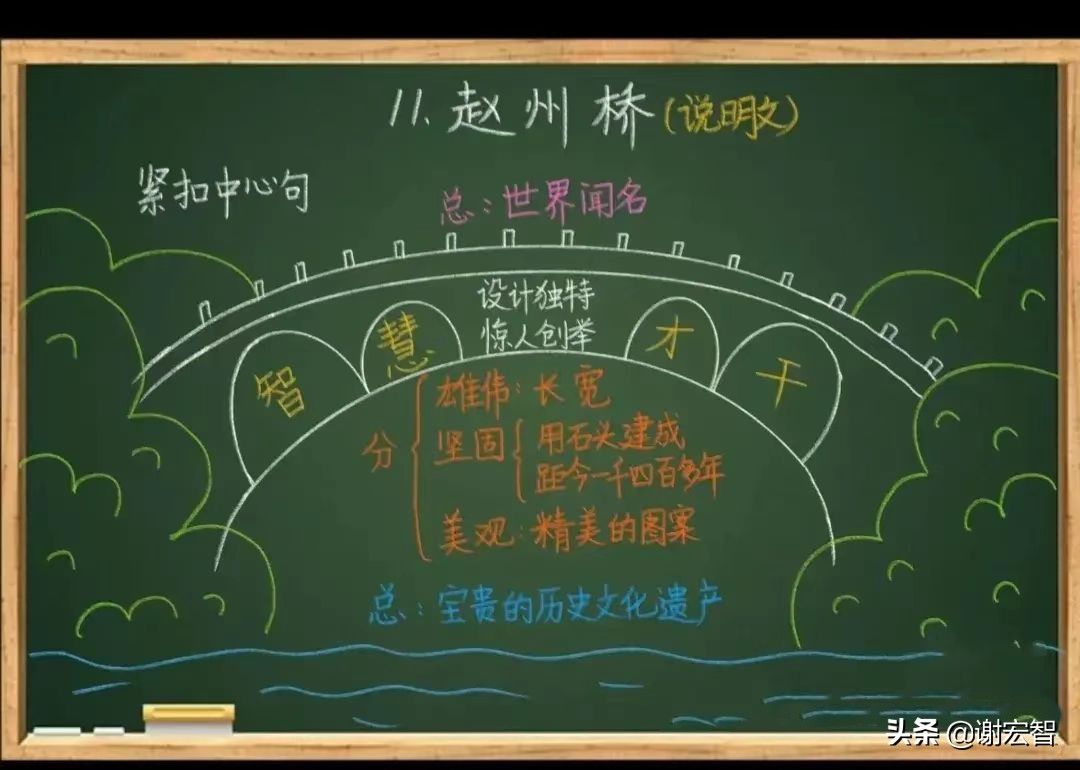 11.赵州桥(说明文)
紧扣中心句
总:世界闻名
设计独特
惊人创举
智 慧 才 干
分
雄伟:长宽
坚固
用石头建成
距今一千四百多年
美观:精美的图案
总:宝贵的历史文化遗产
头条 @谢宏智